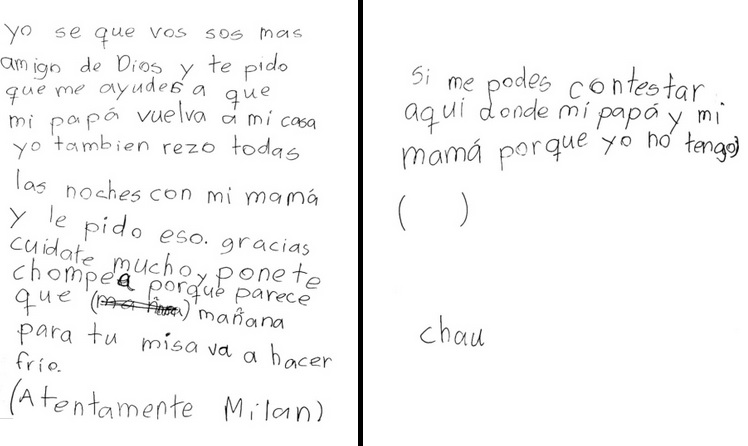 yo se que vos sos mas
amigo de Dios y te pido
que me ayudes a que
mi papá vuelva a mi casa
yo tambien rezo todas
las noches con mi mamá
y le pido eso. gracias
cuidate mucho, ponete
chompea porque parece
que () mañana
para tu misa va a hacer
frío.
(Atentamente Milan)
si me podes contestar
aqui donde mi papá y mi
mamá porque yo no tengo)
( )
chau